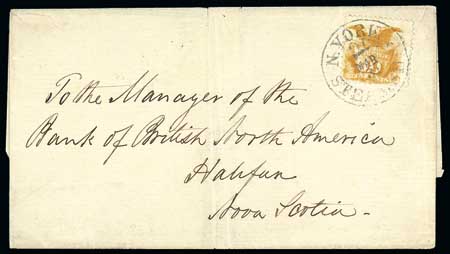 N. YORK
STEAMSH
To the Manager of the
Bank of British North America
Halifax
Nova Scotia -